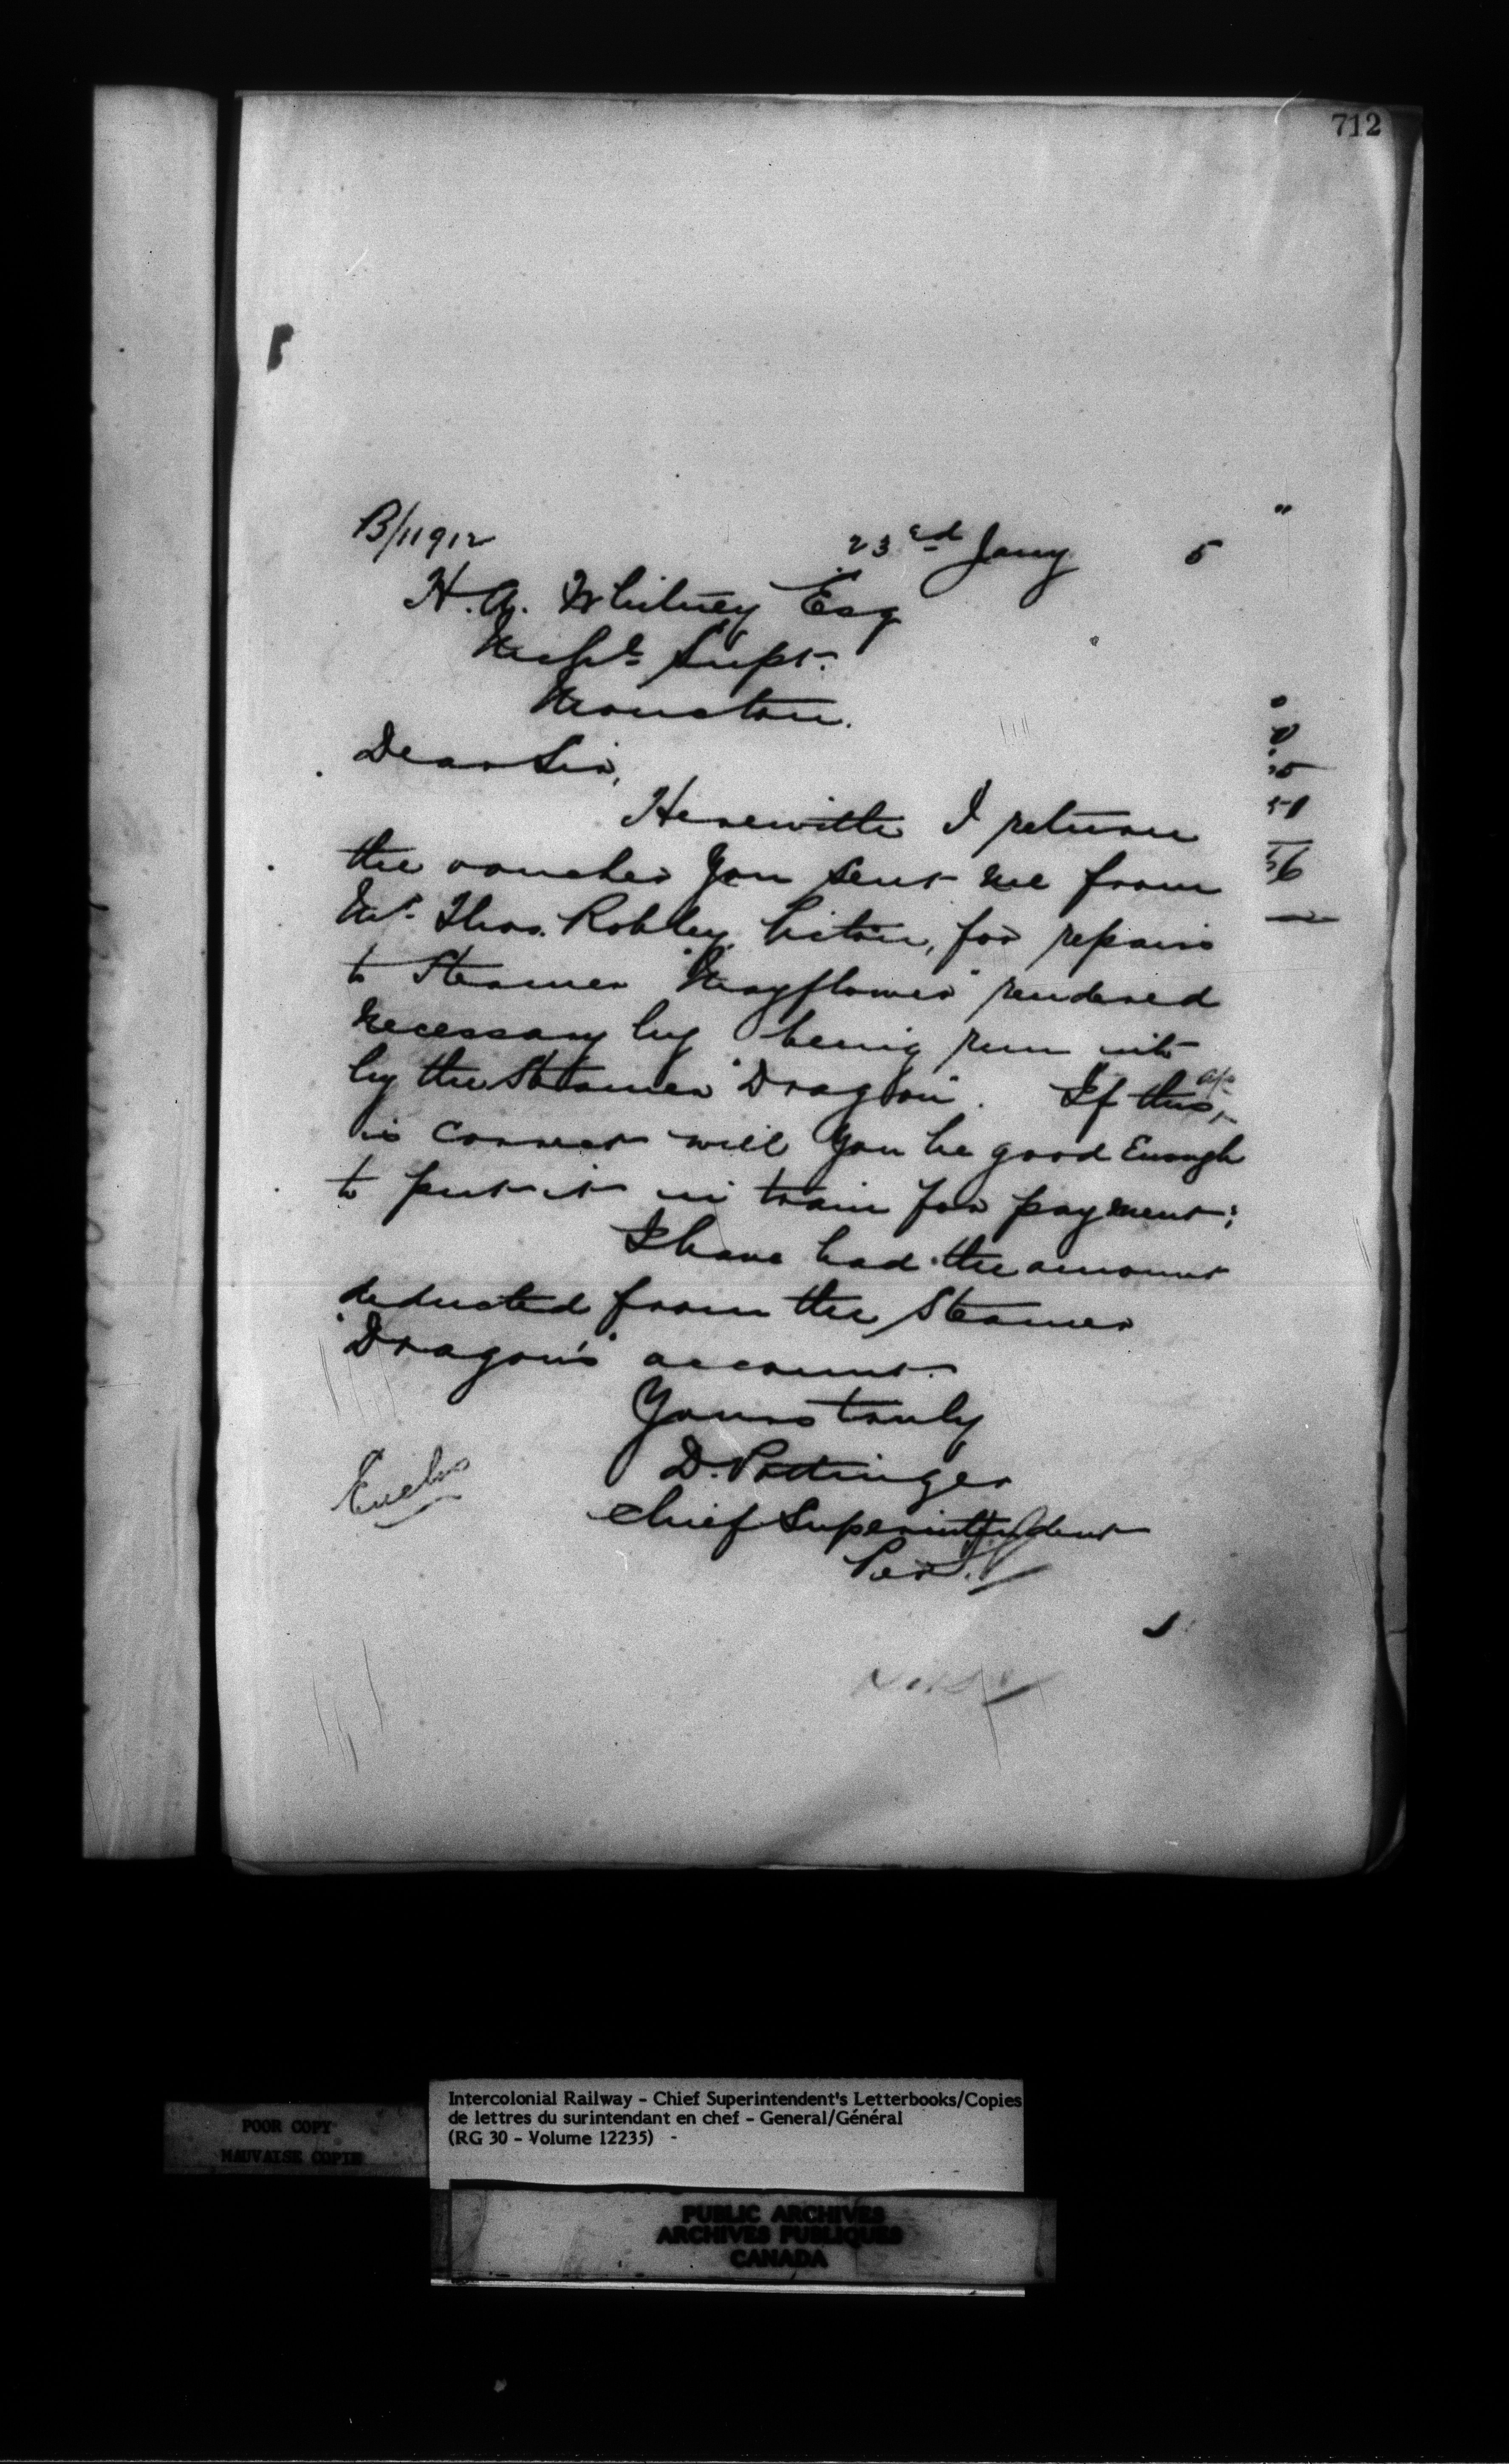 712
B/11912
23rd Jany 5
H. A. Whitney Esq
Mechl Supt.
Moncton.
Dear Sir,
Herewith I return
the voucher you sent me from
Mr. Thos. Robley Pictou, for repairs
to Steamer "Mayflower" rendered
necessary by being run into
by the Steamer "Dragon". If this a/c
is correct will you be good Enough
to put it in train for payment;
I have had the amount
deducted from the Steamer
"Dragon's" account.
Yours truly
D. Pottinger
Chief Superintendent
Per
Enclo
56
POOR COPY
MAUVAISE COPIE
Intercolonial Railway - Chief Superintendent's Letterbooks/Copies
de lettres du surintendant en chef - General/Général
(RG 30 - Volume 12235) -
PUBLIC ARCHIVES
ARCHIVES PUBLIQUES
CANADA